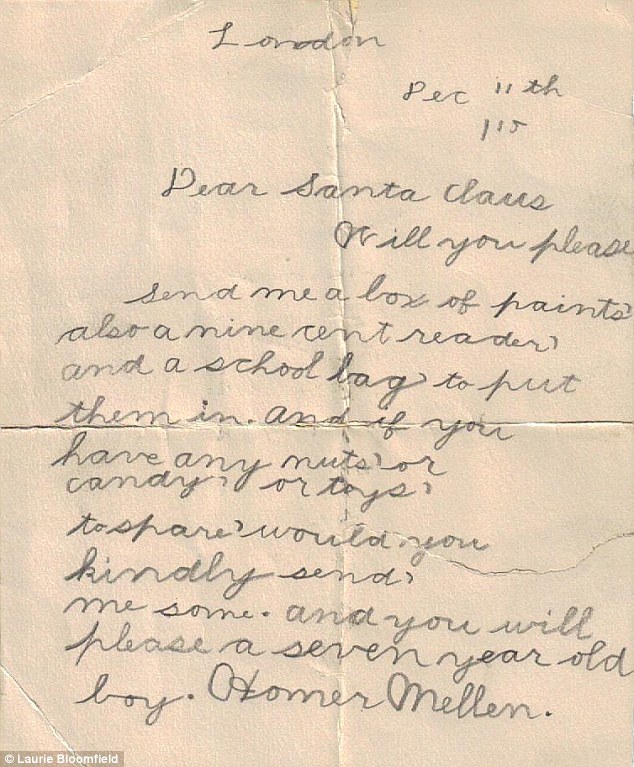 London
Dec 11th
'15
Dear Santa Claus
Will you please
send me a box of paints,
also a nine cent reader,
and a school bag, to put
them in. And if you
have any nuts, or
candy, or toys,
to spare, would you
kindly send,
me some. And you will
please a seven year old
boy. Homer Mellen.
© Laurie Bloomfield